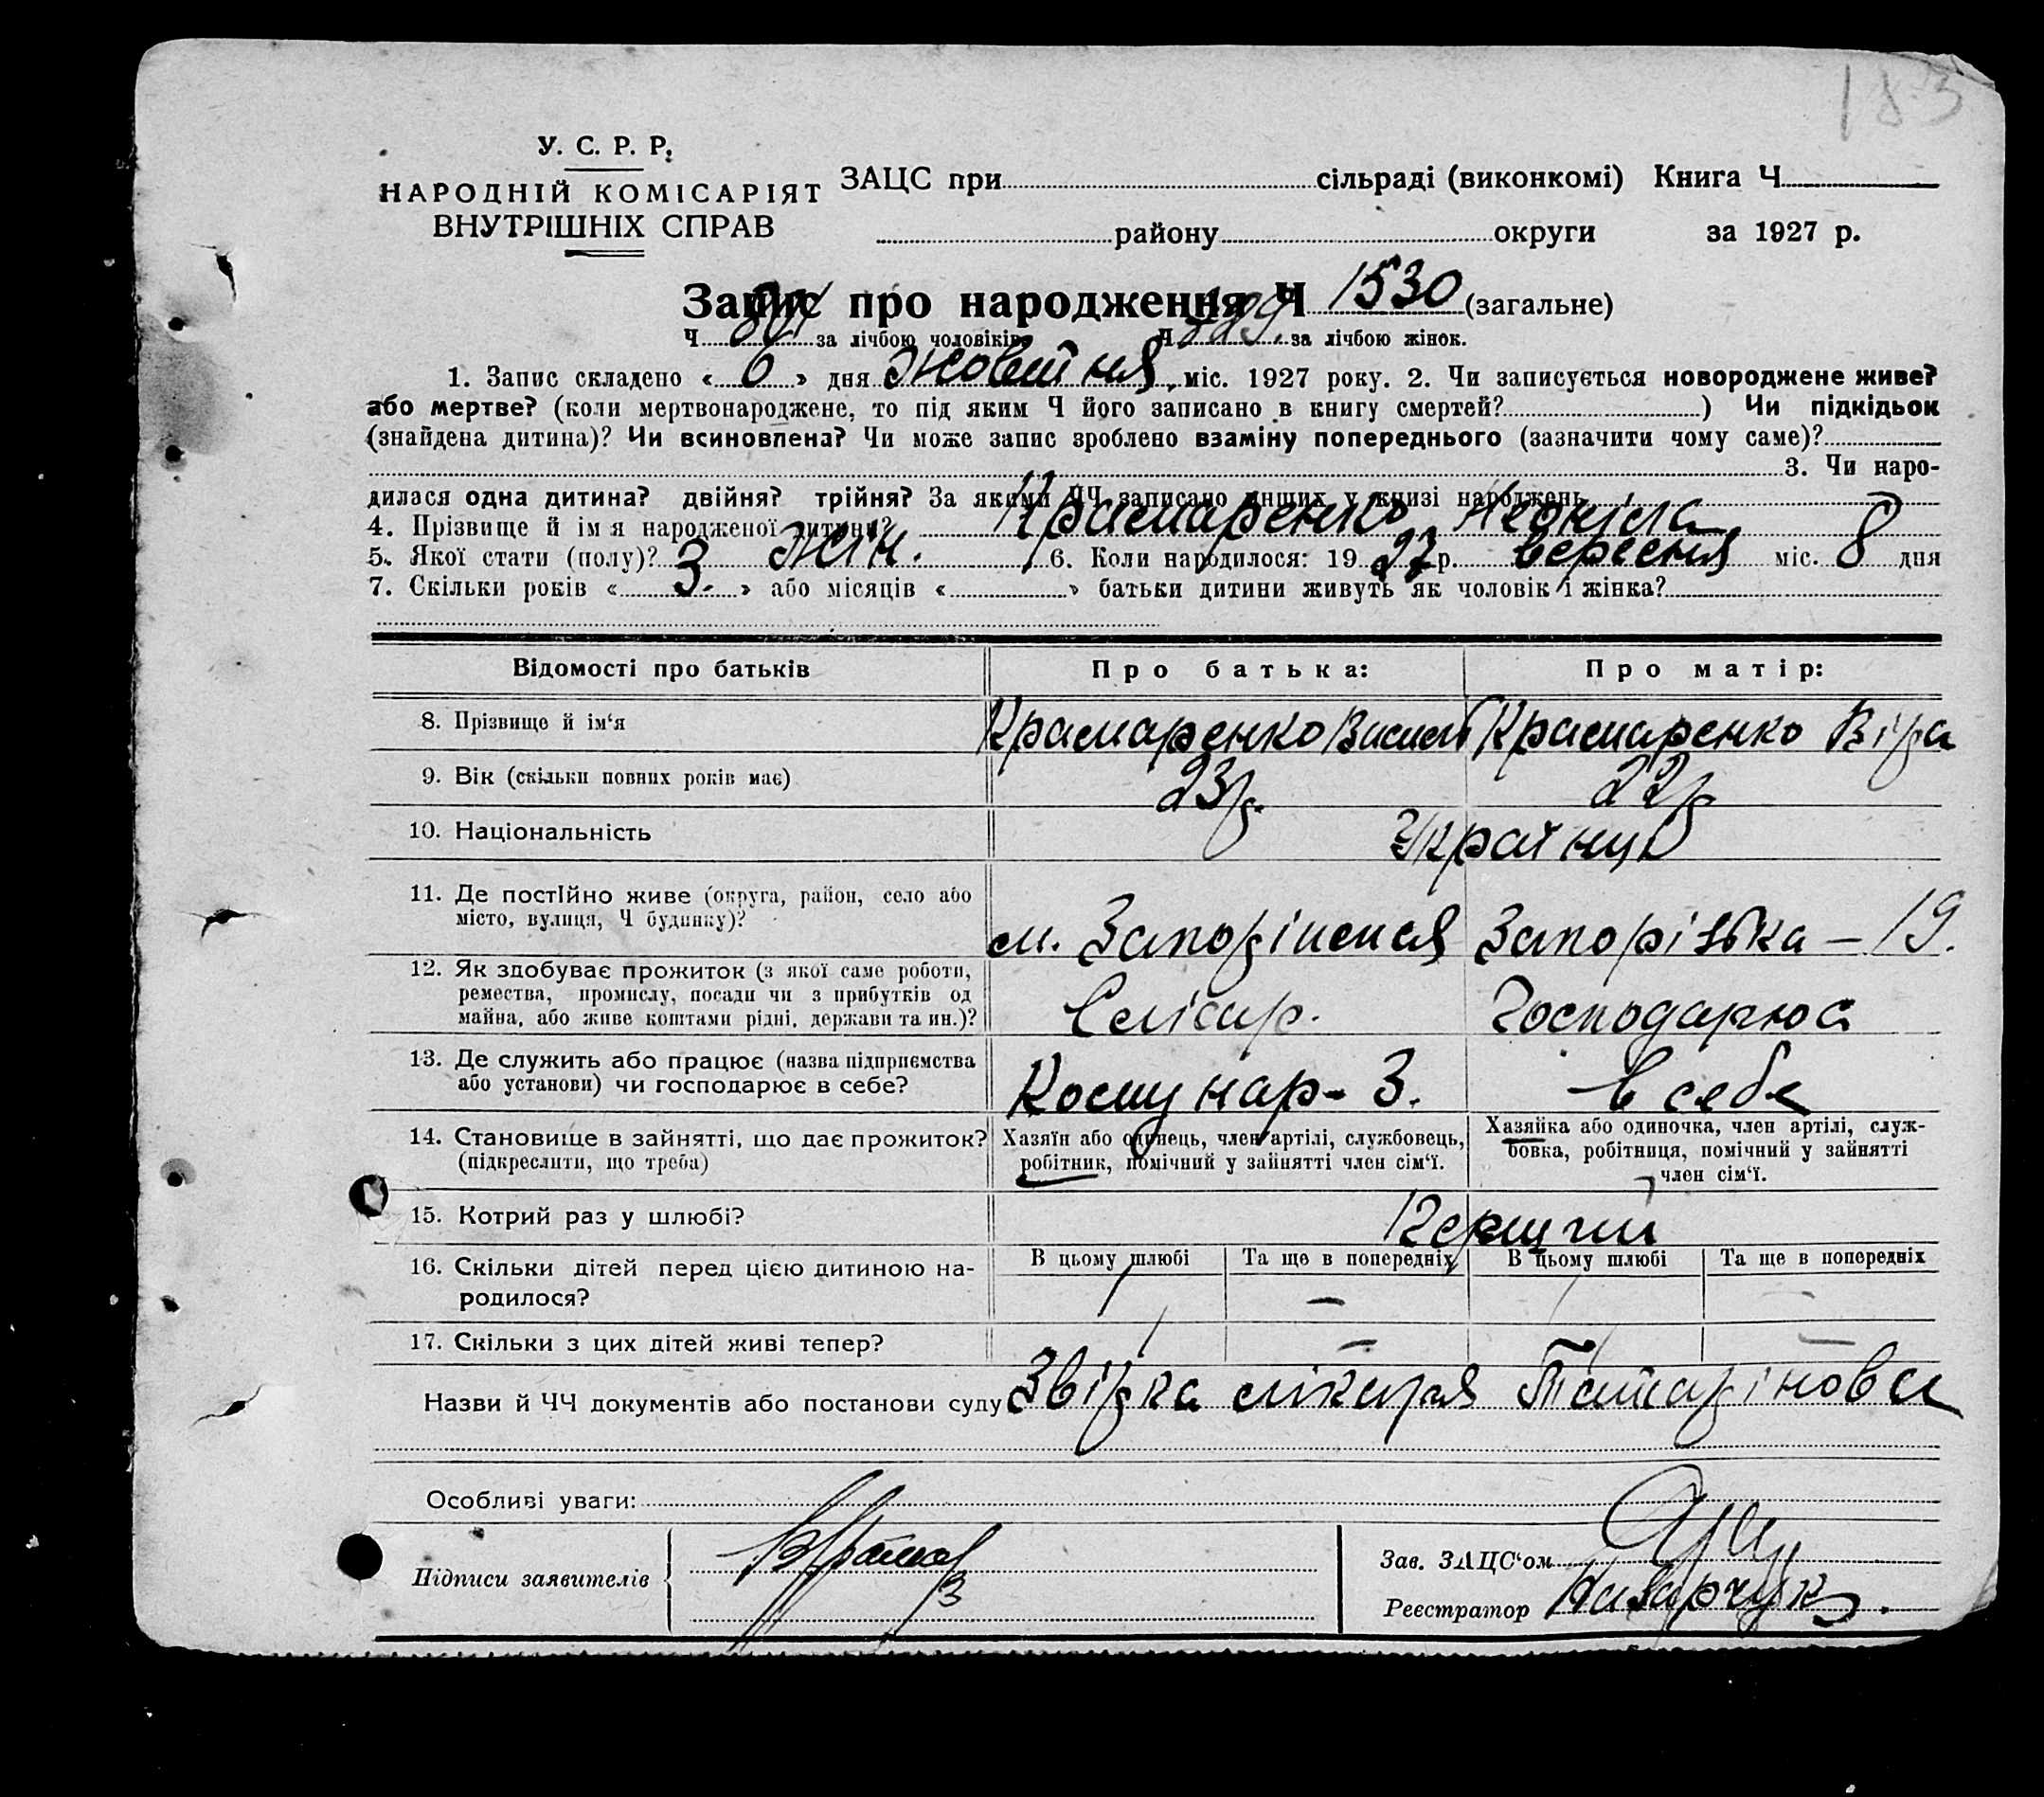 183
У. С. Р. Р.
НАРОДНІЙ КОМІСАРІЯТ
ВНУТРІШНІХ СПРАВ
ЗАЦС при сільраді (виконкомі) Книга Ч
району округи за 1927 р.
Запис про народження Ч 1530 (загальне)
Ч за лічбою чоловіків Ч за лічбою жінок.
1. Запис складено « 6 » дня Жовтня міс. 1927 року. 2. Чи записується новороджене живе?
або мертве? (коли мертвонароджене, то під яким Ч його записано в книгу смертей? ) Чи підкідьок
(знайдена дитина)? Чи всиновлена? Чи може запис зроблено взаміну попереднього (зазначити чому саме)?
3. Чи наро-
дилася одна дитина? двійня? трійня? За якими ЧЧ записано инших у книзі народжень
4. Прізвище й ім я народженої дитини? Крамаренко Леоніла
5. Якої стати (полу)? Жін. 6. Коли народилося: 19 27 р. вересня міс. 8 дня
7. Скільки років « 3. » або місяців « » батьки дитини живуть як чоловік і жінка?
Відомості про батьків
Про батька:
Про матір:
8. Прізвище й ім‘я
Крамаренко Василь
Крамаренко Віра
9. Вік (скільки повних років має)
23 р.
22 р
10. Національність
Українці
11. Де постійно живе (округа, район, село або
місто, вулиця, Ч будинку)?
м. Запоріжжя
Запорізька – 19.
12. Як здобуває прожиток (з якої саме роботи,
ремества, промислу, посади чи з прибутків од
майна, або живе коштами рідні, держави та ин.)?
Слісар.
Господарює
13. Де служить або працює (назва підприємства
або установи) чи господарює в себе?
Комунар- З.
в себе
14. Становище в зайнятті, що дає прожиток?
(підкреслити, що треба)
Хазяїн або одинець, член артілі, службовець,
робітник, помічний у зайнятті член сім‘ї.
Хазяйка або одиночка, член артілі, служ-
бовка, робітниця, помічний у зайнятті
член сім‘ї.
15. Котрий раз у шлюбі?
Перший
16. Скільки дітей перед цією дитиною на-
родилося?
В цьому шлюбі
Та ще в попередніх
В цьому шлюбі
Та ще в попередніх
1 – 1 –
17. Скільки з цих дітей живі тепер?
1 – 1 –
Назви й ЧЧ документів або постанови суду Звідка лікаря Татарінова
Особливі уваги:
Підписи заявителів
Зав. ЗАЦС‘ом
Реєстратор